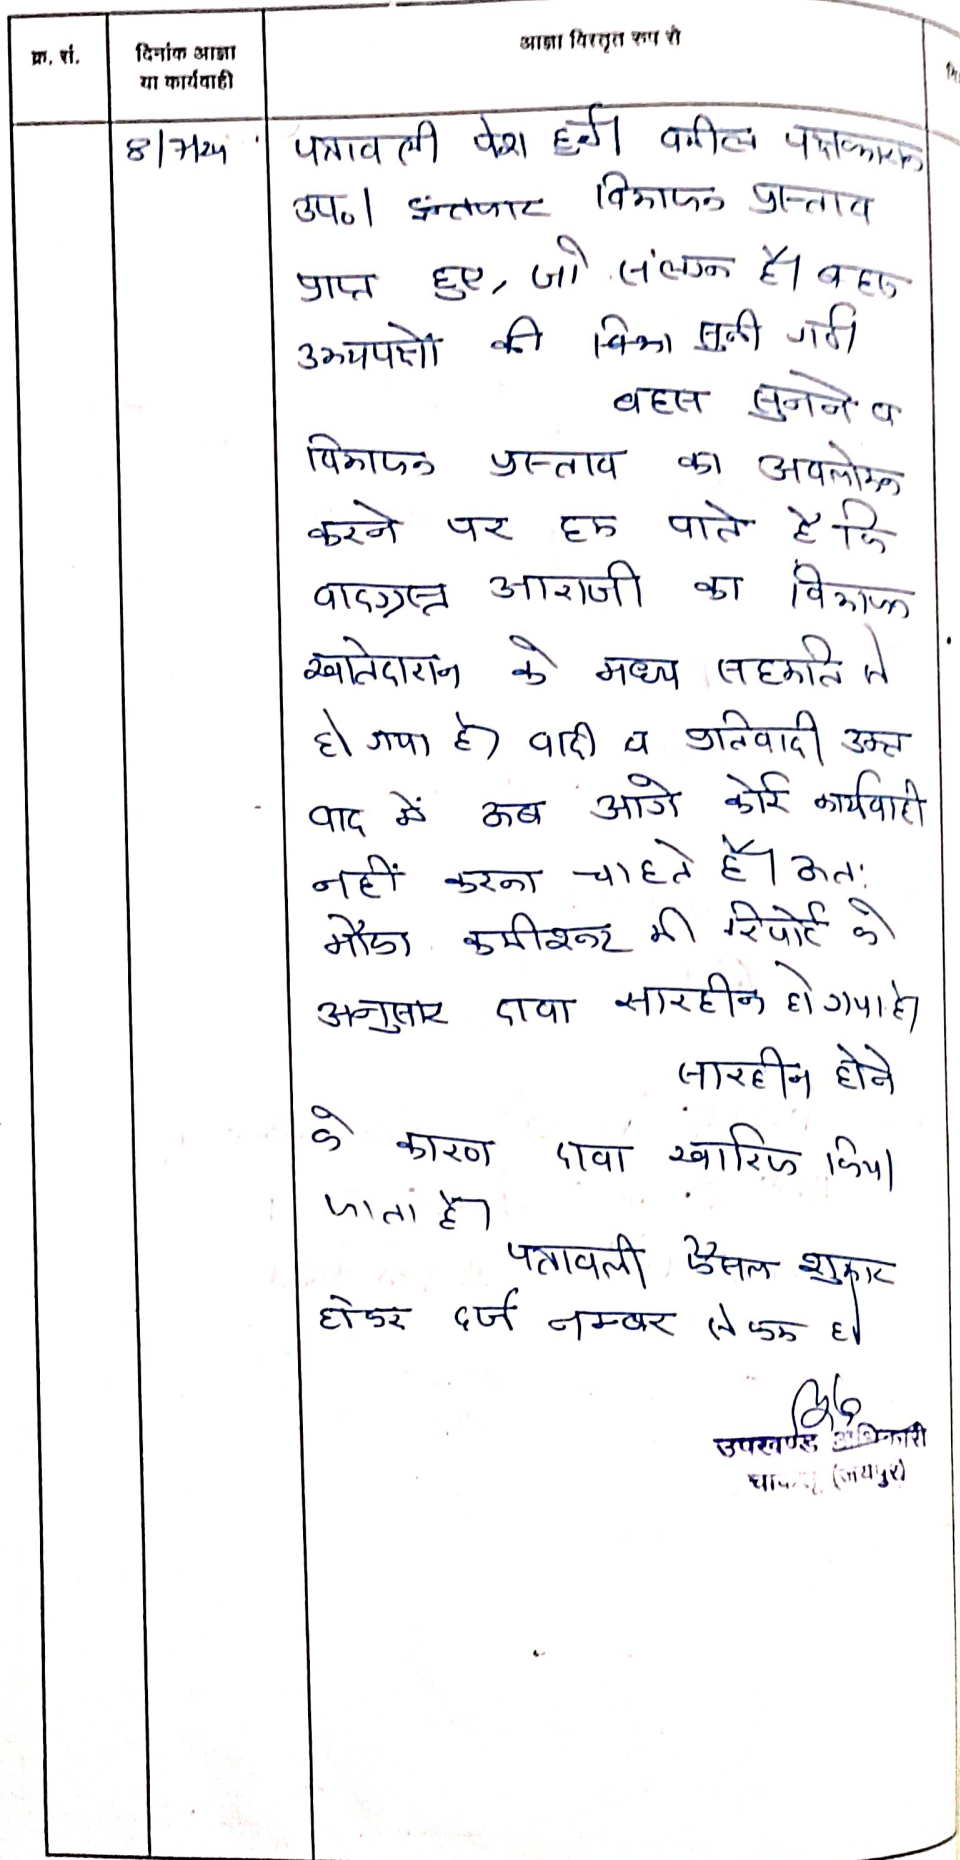 क्र. सं.
दिनांक आज्ञा
या कार्यवाही
आज्ञा विस्तृत रूप से
8/7/24
पत्रावली पेश हुई। वकील पक्षकारान
उप०। विभाजन प्रस्ताव
प्राप्त हुए, जो संलग्न है। बहस
उभयपक्षों की सुनी गई।
बहस सुनने व
विभाजन प्रस्ताव का अवलोकन
करने पर हम पाते है कि
वादग्रस्त आराजी का विभाजन
खातेदारान के मध्य सहमति से
हो गया है। वादी व प्रतिवादी उक्त
वाद में अब आगे कोई कार्यवाही
नहीं करना चाहते हैं। अतः
मौका कमीश्नर की रिपोर्ट के
अनुसार दावा सारहीन हो गया है।
सारहीन होने
के कारण दावा खारिज किया
जाता है।
पत्रावली फैसल शुमार
होकर दर्ज नम्बर से कम हो।
उपखण्ड अधिकारी
(जयपुर)